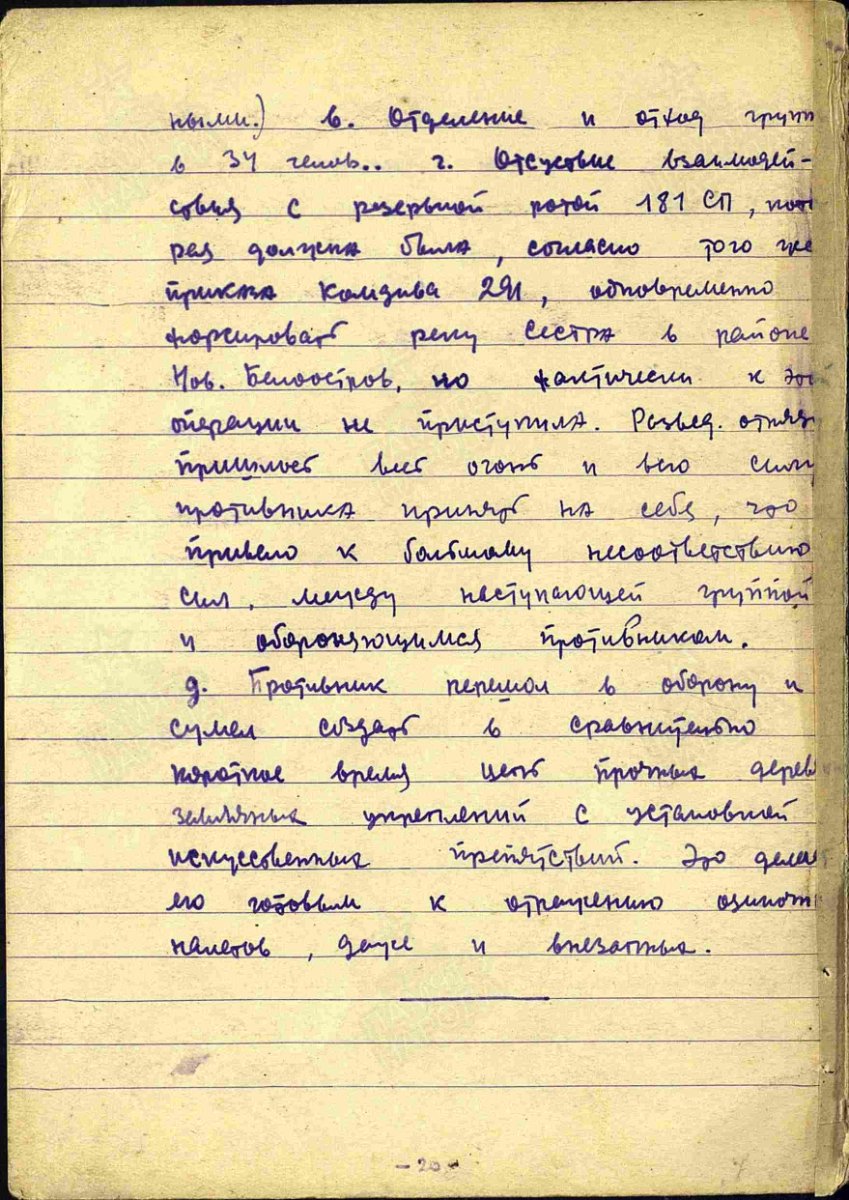 ными.) в. Отделение и отход групп
в 34 челов.. г. Отсуствие взаимодей-
ствия с резервной ротой 181 СП, кото
рая должна была, согласно того же
приказа Комдива 291, одновременно
форсировать реку Сестра в районе
Нов. Белоостров, но фактически к это
операции не приступила. Развед. отряд
пришлось весь огонь и всю силу
противника принять на себя, что
привело к большому несоответствию
сил, между наступающей группой
и обороняющимся противником.
д. Противник перешол в оборону и
сумел создать в сравнительно
короткое время цепь прочных дерев
земляных укреплений с установкой
искусственных препятствий. Это делает
его готовым к отражению одиночн
налетов, даже и внезапных.
- 20 -